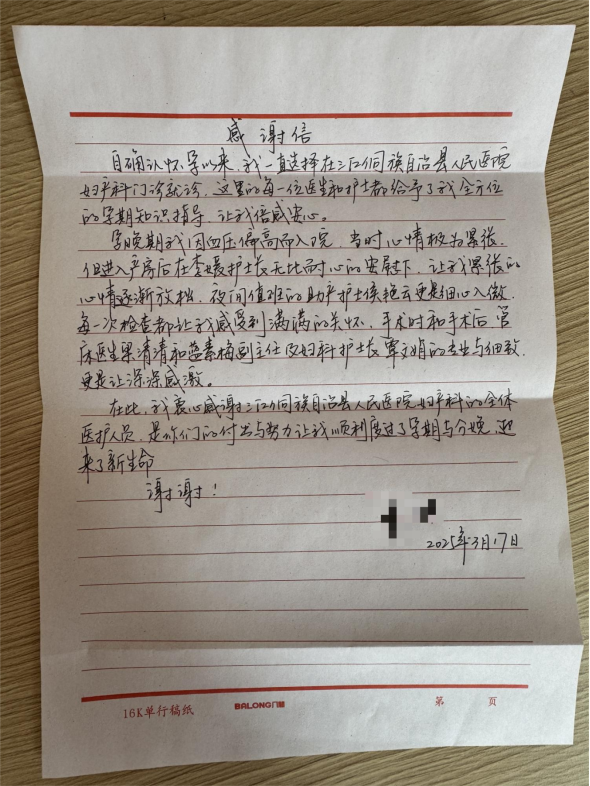 感谢信
自确认怀孕以来，我一直选择在三江侗族自治县人民医院
妇产科门诊就诊，这里的每一位医生和护士都给予了我全方位
的孕期知识指导，让我倍感安心。
孕晚期我因血压偏高而入院，当时心情极为紧张，
但进入产房后在李媛护士长无比耐心的安慰下，让我紧张的
心情逐渐放松，夜间值班的助产护士侯艳云更是细心入微，
每一次检查都让我感受到满满的关怀，手术时和手术后管
床医生梁清清和蓝素梅副主任及妇科护士长覃文娟的专业与细致，
更是让深深感激。
在此，我衷心感谢三江侗族自治县人民医院妇产科的全体
医护人员，是你们的付出与努力让我顺利度过了孕期与分娩，迎
来了新生命
谢谢！
2025年3月17日
16K单行稿纸 BALONG 第 页